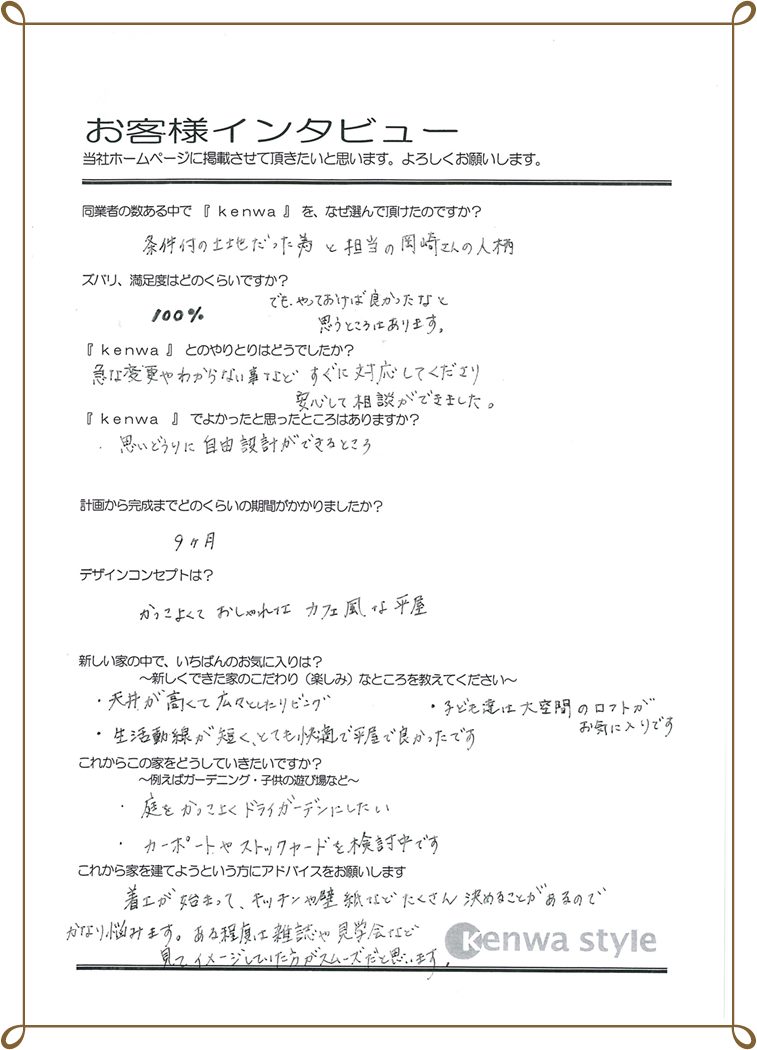 お客様インタビュー
当社ホームページに掲載させて頂きたいと思います。よろしくお願いします。
同業者の数ある中で 『 kenwa 』 を、なぜ選んで頂けたのですか？
条件付の土地だった為 と 担当の岡崎さんの人柄
ズバリ、満足度はどのくらいですか？
100% でも、やっておけば良かったなと
思うところはあります。
『 kenwa 』 とのやりとりはどうでしたか？
急な変更やわからない事などすぐに対応してくださり
安心して相談ができました。
『 kenwa 』 でよかったと思ったところはありますか？
・思いどうりに自由設計ができるところ
計画から完成までどのくらいの期間がかかりましたか？
9ヶ月
デザインコンセプトは？
かっこよくておしゃれなカフェ風な平屋
新しい家の中で、いちばんのお気に入りは？
～新しくできた家のこだわり（楽しみ）なところを教えてください～
・天井が高くて広々としたリビング
・子ども達は大空間のロフトが
お気に入りです
・生活動線が短く、とても快適で平屋で良かったです
これからこの家をどうしていきたいですか？
～例えばガーデニング・子供の遊び場など～
・庭をかっこよくドライガーデンにしたい
・カーポートやストックヤードを検討中です
これから家を建てようという方にアドバイスをお願いします
着工が始まって、キッチンや壁紙などたくさん決めることがあるので
かなり悩みます。ある程度は雑誌や見学会など
見て、イメージしていた方がスムーズだと思います。
kenwa style